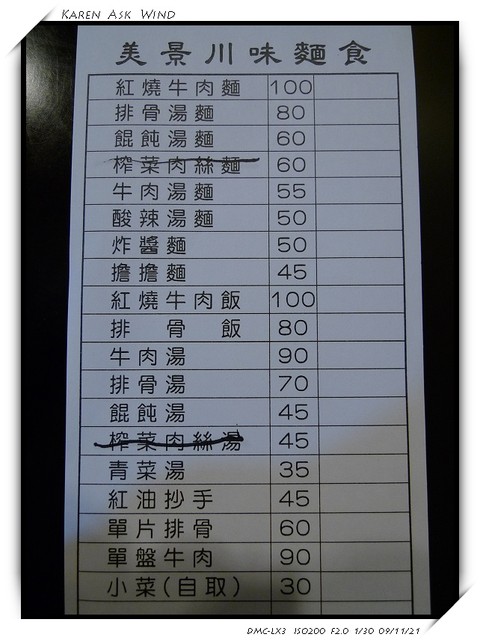 KAREN ASK WIND
美景川味麵食
紅燒牛肉麵 100
排骨湯麵 80
餛飩湯麵 60
榨菜肉絲麵 60
牛肉湯麵 55
酸辣湯麵 50
炸醬麵 50
擔擔麵 45
紅燒牛肉飯 100
排骨飯 80
牛肉湯 90
排骨湯 70
餛飩湯 45
榨菜肉絲湯 45
青菜湯 35
紅油抄手 45
單片排骨 60
單盤牛肉 90
小菜(自取) 30
DMC-LX3 ISO200 F2.0 1/30 09/11/21